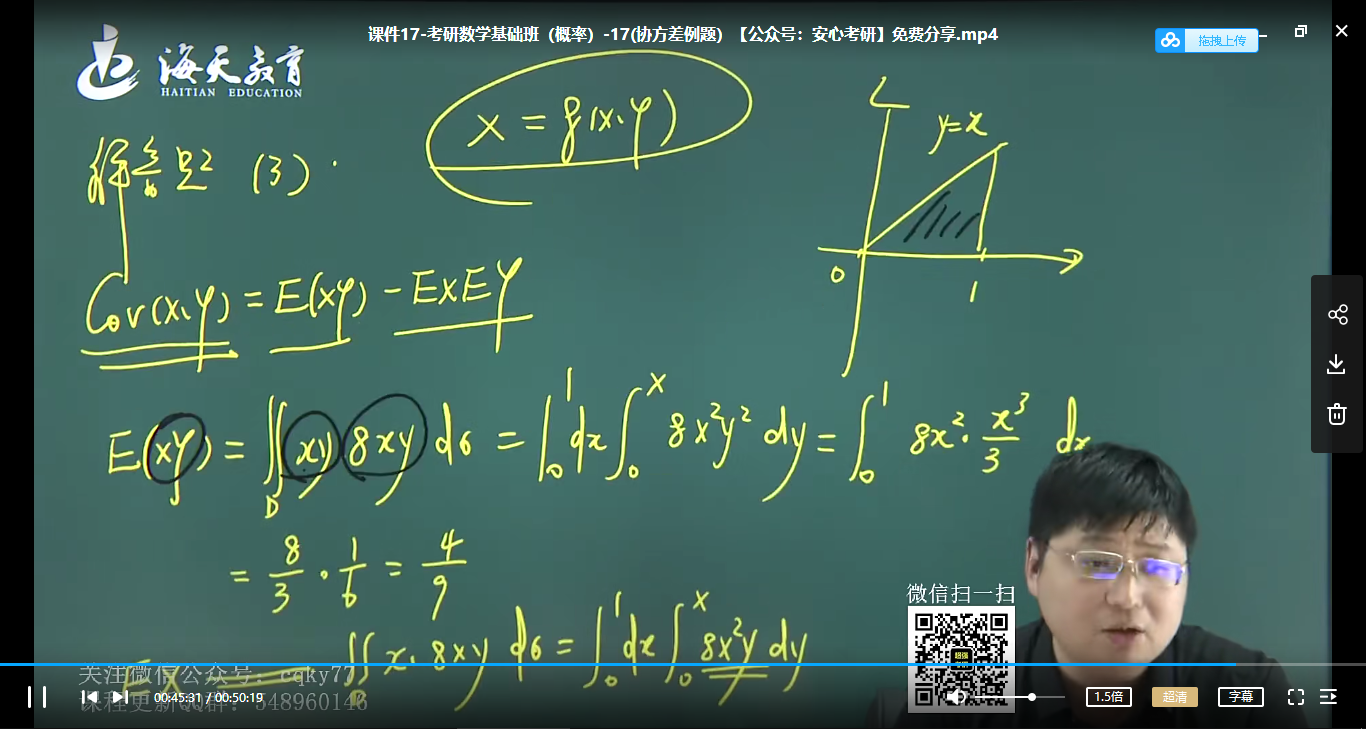 课件17-考研数学基础班（概率）-17(协方差例题) 【公众号：安心考研】免费分享.mp4
拖拽上传
海天教育
HAITIAN EDUCATION
x = g(x,y)
y=x
解答题 (3).
0
1
Cov(x,y) = E(xy) - EXEY
E(xy) = ∬_D xy 8xy dσ = ∫_0^1 dx ∫_0^x 8x²y² dy = ∫_0^1 8x² · x³/3 dx
= 8/3 · 1/6 = 4/9
EX = ∬_D x · 8xy dσ = ∫_0^1 dx ∫_0^x 8x²y dy
微信扫一扫
关注微信公众号：cqky77
课程更新QQ群：548960146
00:45:31 / 00:50:19
1.5倍
超清
字幕